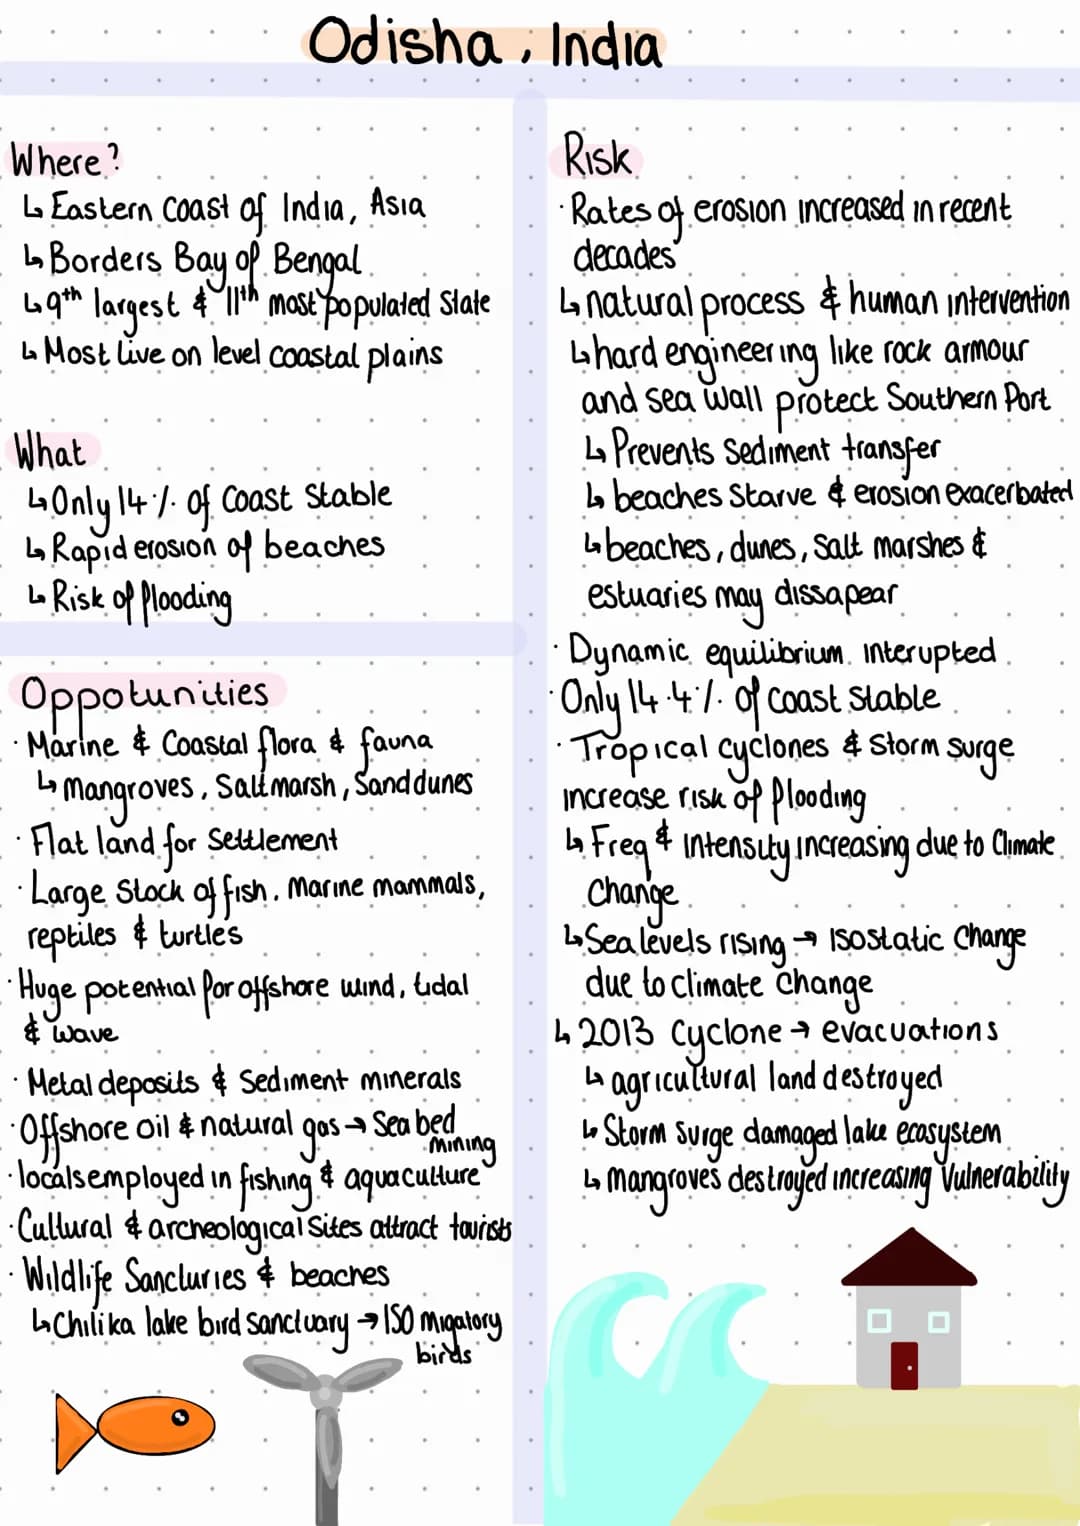 Odisha, India
Where?
↳ Eastern Coast of India, Asia
↳ Borders Bay of Bengal
↳ 9th largest & 11th most populated State
↳ Most live on level coastal plains
What
↳ Only 14% of Coast Stable
↳ Rapid erosion of beaches
↳ Risk of flooding
Oppotunities
· Marine & Coastal flora & fauna
↳ mangroves, Saltmarsh, Sanddunes
· Flat land for Settlement
· Large Stock of fish, Marine mammals,
reptiles & turtles
· Huge potential for offshore wind, tidal
& wave
· Metal deposits & Sediment minerals
· Offshore oil & natural gas → Sea bed
mining
· locals employed in fishing & aquaculture
· Cultural & archeological Sites attract tourists
· Wildlife Sancturies & beaches
↳ Chilika lake bird Sanctuary → 150 migatory
birds
Risk
· Rates of erosion increased in recent
decades
↳ natural process & human intervention
↳ hard engineering like rock armour
and sea wall protect Southern Port
↳ Prevents Sediment transfer
↳ beaches Starve & erosion exacerbated
↳ beaches, dunes, Salt marshes &
estuaries may dissapear
· Dynamic equilibrium interupted
· Only 14.4% of coast Stable
· Tropical cyclones & Storm surge
increase risk of flooding
↳ Freq & Intensity increasing due to Climate
Change
↳ Sea levels rising → Isostatic Change
due to climate Change
↳ 2013 Cyclone → evacuations
↳ agricultural land destroyed
↳ Storm Surge damaged lake ecosystem
↳ mangroves destroyed increasing Vulnerability